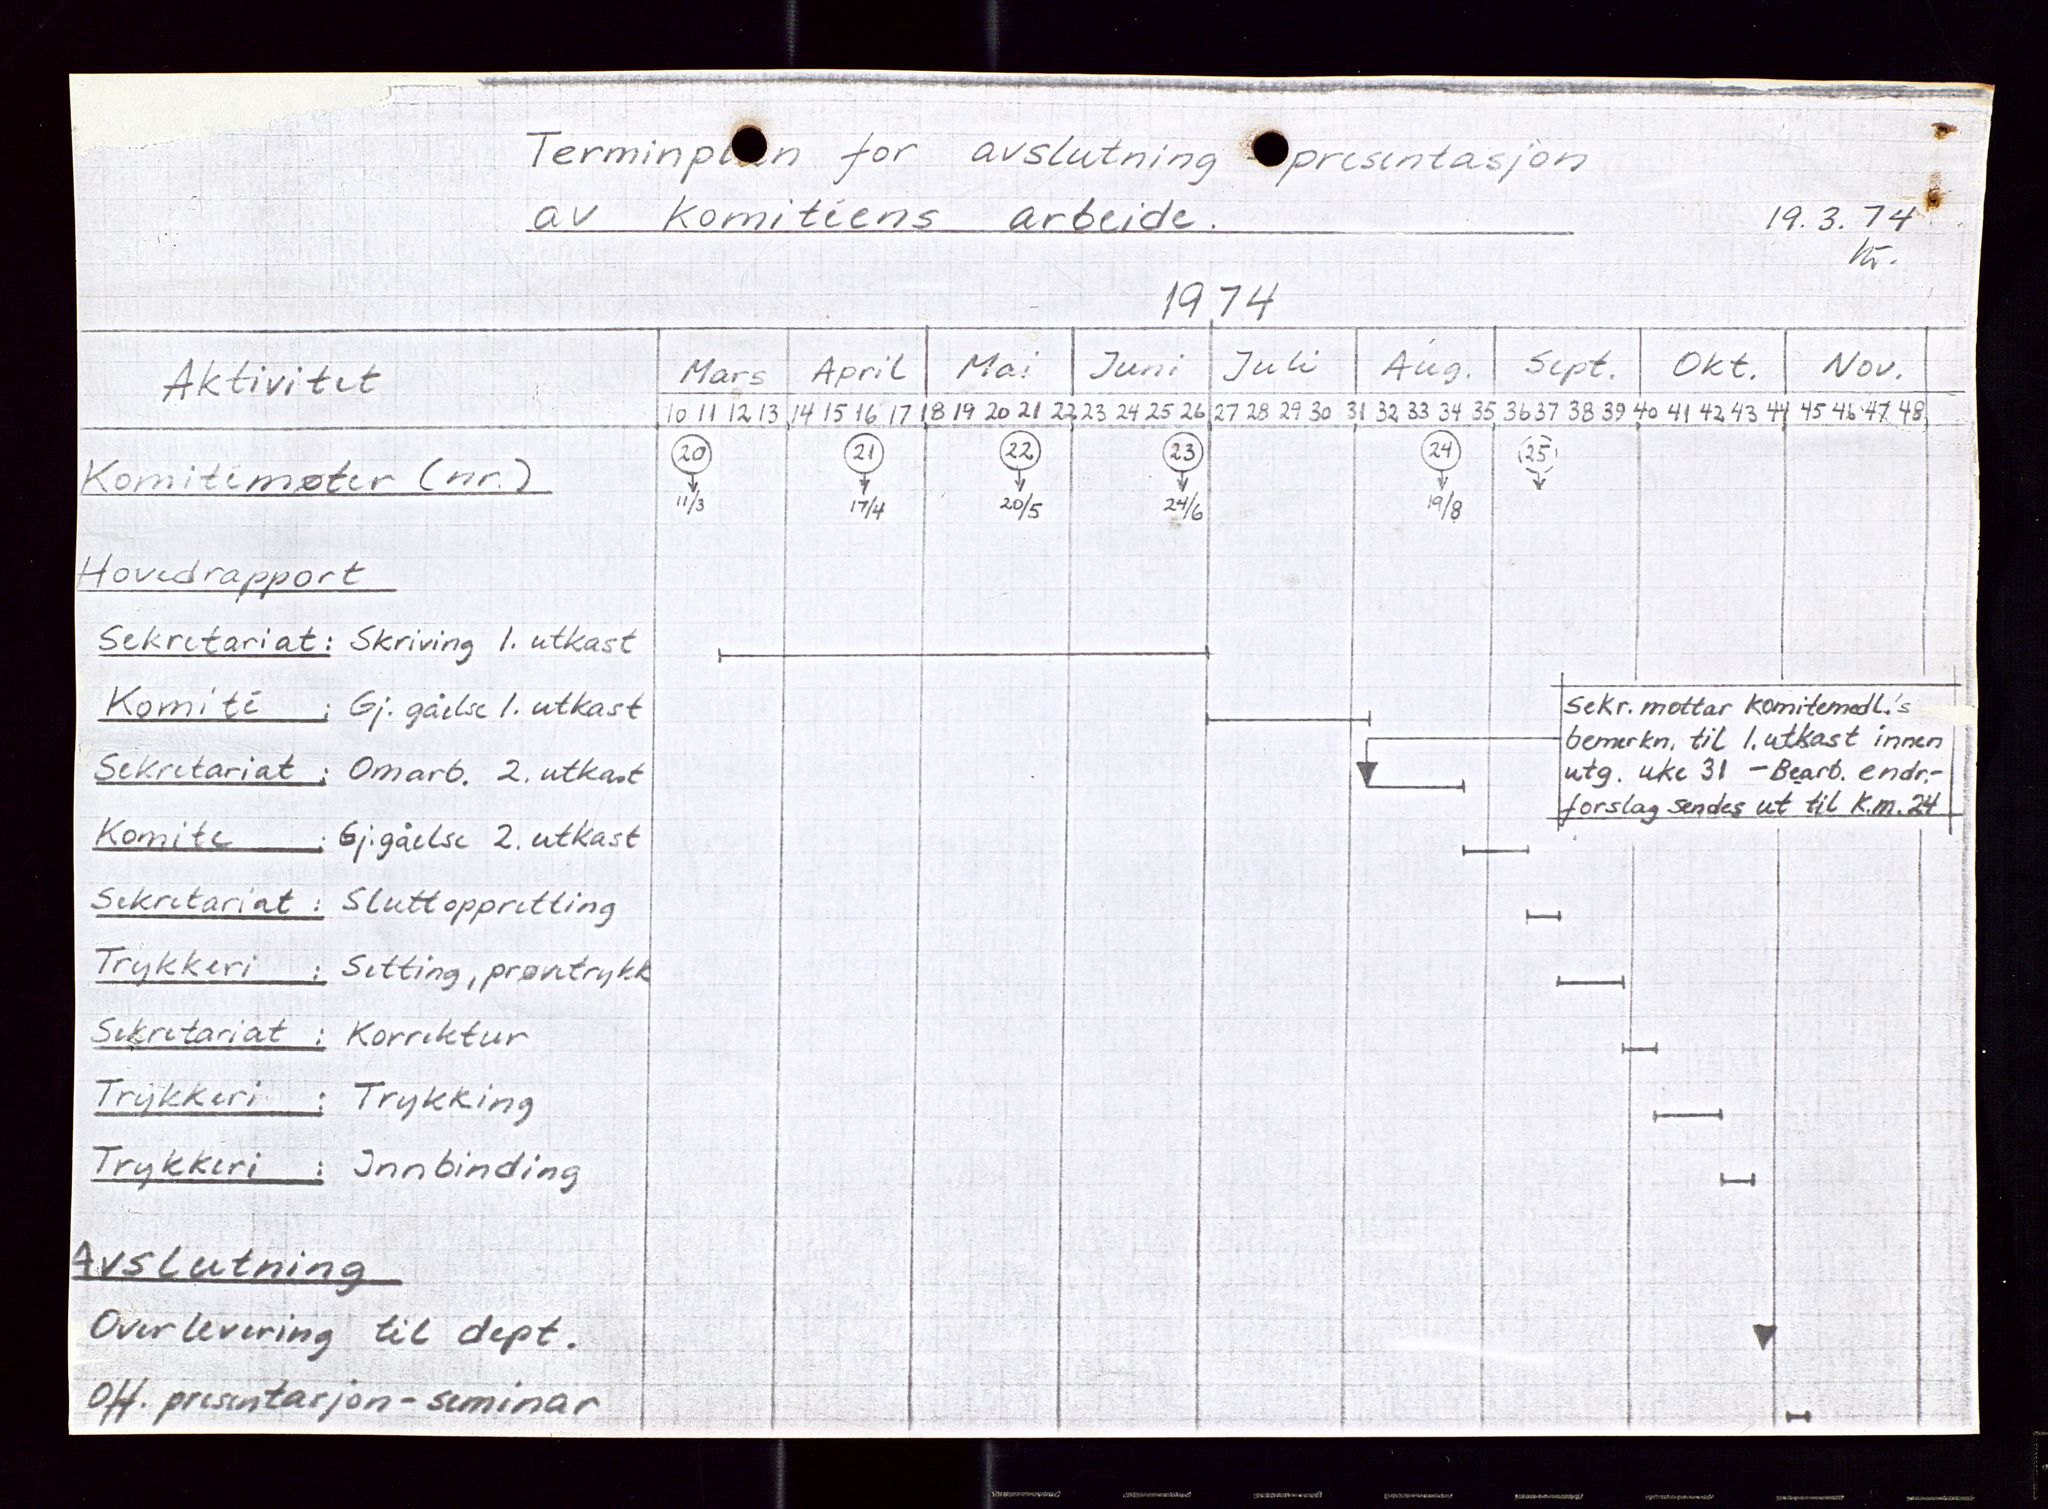 Terminplan for avslutning - presentasjon
av komitéens arbeide.
19.3.74
1974
Aktivitet
Mars April Mai Juni Juli Aug. Sept. Okt. Nov.
10 11 12 13 14 15 16 17 18 19 20 21 22 23 24 25 26 27 28 29 30 31 32 33 34 35 36 37 38 39 40 41 42 43 44 45 46 47 48
Komitémøter (nr.) 20 21 22 23 24 25
11/3 17/4 20/5 24/6 19/8
Hovedrapport
Sekretariat: Skriving 1. utkast
Komité : Gj. gåelse 1. utkast
Sekr. mottar komitemedl.'s
bemerkn. til 1. utkast innen
utg. uke 31 - Bearb. endr.-
forslag sendes ut til K.m. 24
Sekretariat : Omarb. 2. utkast
Komite : Gj.gåelse 2. utkast
Sekretariat : Sluttoppretting
Trykkeri : Setting, prøvetrykk
Sekretariat : Korrektur
Trykkeri : Trykking
Trykkeri : Innbinding
Avslutning
Overlevering til dept.
Off. presentasjon - seminar